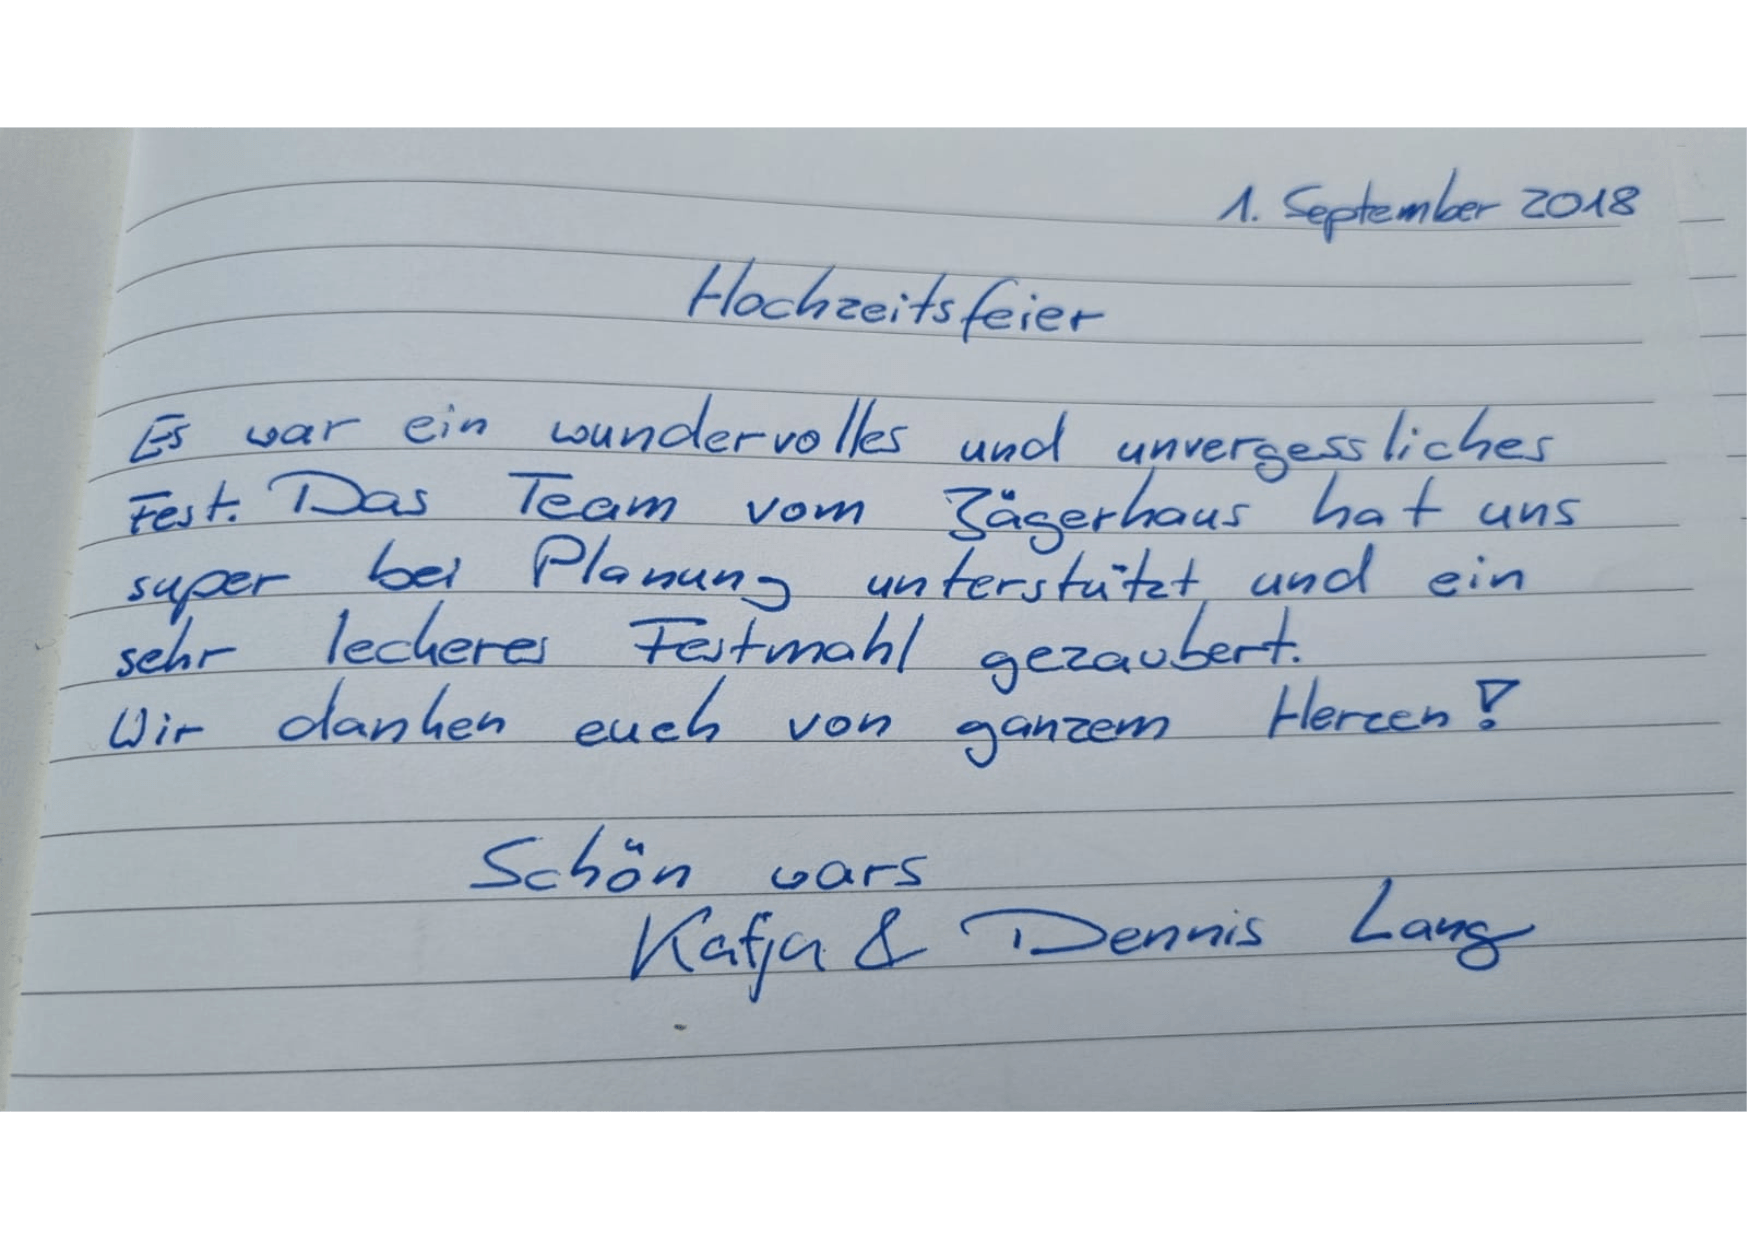 1. September 2018
Hochzeitsfeier
Es war ein wundervolles und unvergessliches
Fest. Das Team vom Jägerhaus hat uns
super bei Planung unterstützt und ein
sehr leckeres Festmahl gezaubert.
Wir danken euch von ganzem Herzen!
Schön wars
Katja & Dennis Lang